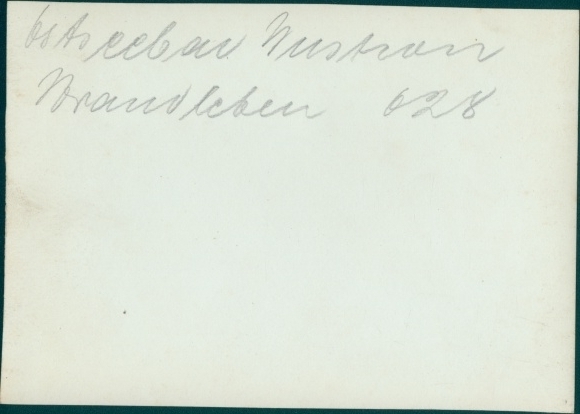 Ostseebad Wustrow
Strandleben 628